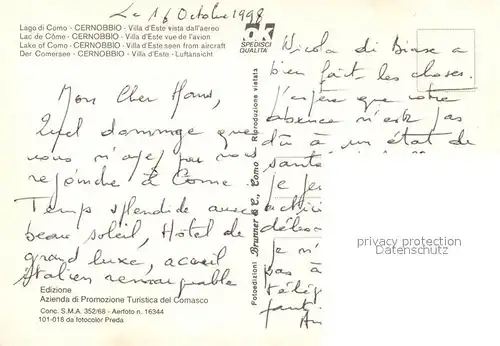 Le 16 Octobre 1998
Lago di Como - CERNOBBIO - Villa d'Este vista dall'aereo
Lac de Côme - CERNOBBIO - Villa d'Este vue de l'avion
Lake of Como - CERNOBBIO - Villa d'Este seen from aircraft
Der Comersee - CERNOBBIO - Villa d'Este - Luftansicht
SPEDISCI
QUALITÀ
Mon Cher Hans,
Quel dommage que
vous n'ayez pas nous
rejoindre à Come.
Temps splendide avec
beau soleil, Hôtel de
grand luxe, accueil
Italien remarquable
Edizione
Azienda di Promozione Turistica del Comasco
Conc. S.M.A. 352/68 - Aerfoto n. 16344
101-018 da fotocolor Preda
Fotoedizioni Brunner & C., Como Riproduzione vietata
Nicola di Biase a
bien fait les choses.
J'espère que votre
absence n'est pas
dû à un état de
santé
Je
Je n'
pas à
télép
privacy protection
Datenschutz